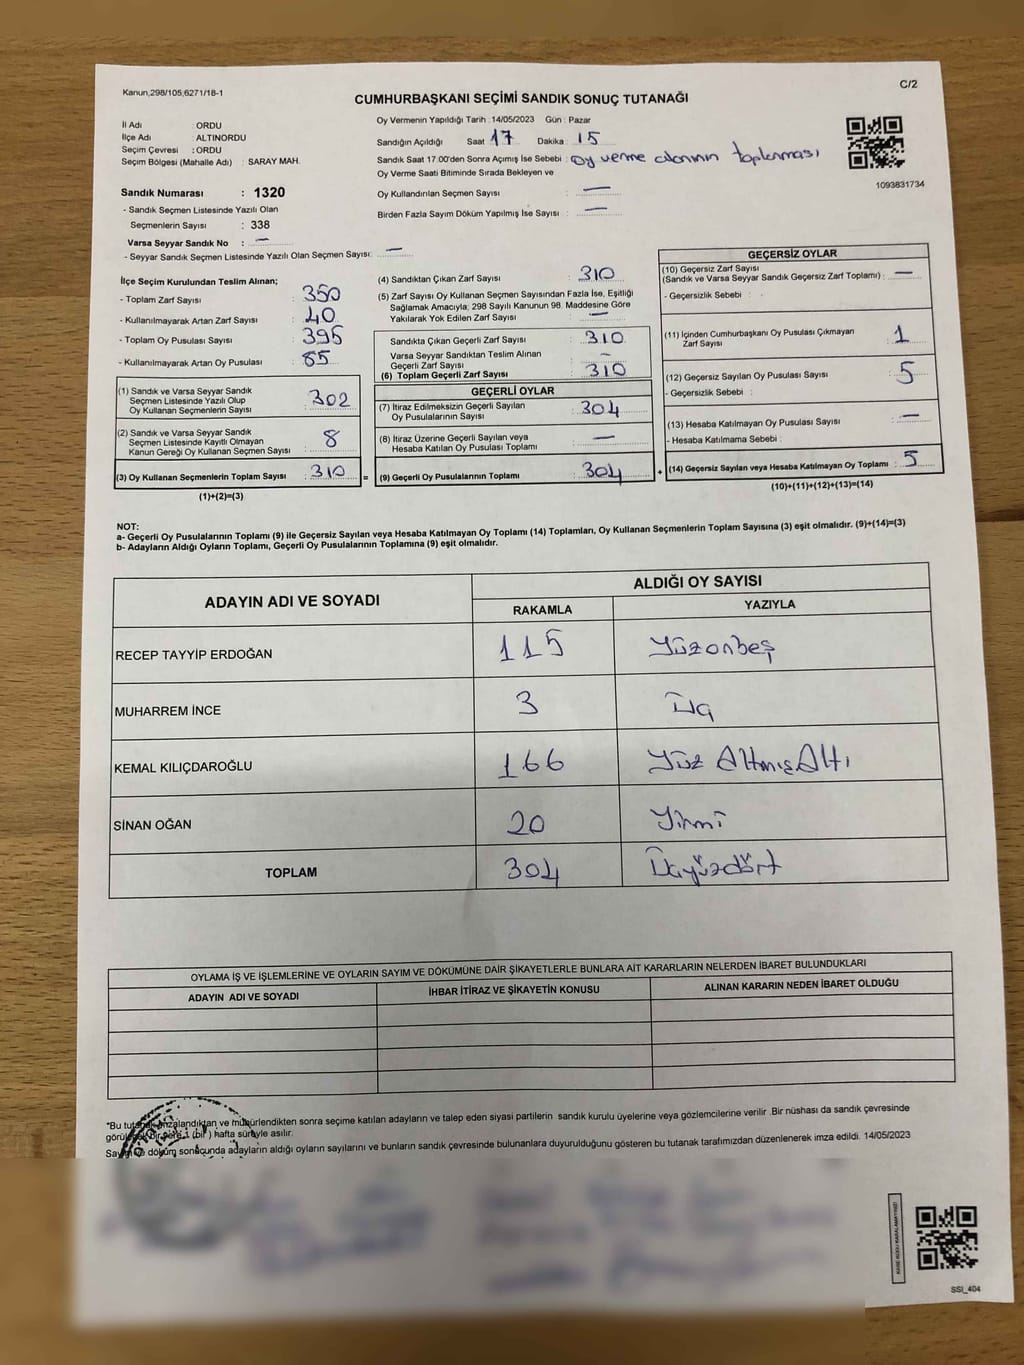 Kanun,298/105,6271/18-1
C/2
CUMHURBAŞKANI SEÇİMİ SANDIK SONUÇ TUTANAĞI
İl Adı : ORDU
İlçe Adı : ALTINORDU
Seçim Çevresi : ORDU
Seçim Bölgesi (Mahalle Adı) : SARAY MAH.
Oy Vermenin Yapıldığı Tarih :14/05/2023 Gün : Pazar
Sandığın Açıldığı Saat 17 Dakika : 15
Sandık Saat 17.00'den Sonra Açımış İse Sebebi : Oy verme alanının toplanması
Oy Verme Saati Bitiminde Sırada Bekleyen ve
Oy Kullandırılan Seçmen Sayısı : —
Birden Fazla Sayım Döküm Yapılmış İse Sayısı : —
1093831734
Sandık Numarası : 1320
- Sandık Seçmen Listesinde Yazılı Olan
Seçmenlerin Sayısı : 338
Varsa Seyyar Sandık No : —
- Seyyar Sandık Seçmen Listesinde Yazılı Olan Seçmen Sayısı: —
İlçe Seçim Kurulundan Teslim Alınan;
- Toplam Zarf Sayısı : 350
- Kullanılmayarak Artan Zarf Sayısı : 40
- Toplam Oy Pusulası Sayısı : 395
- Kullanılmayarak Artan Oy Pusulası : 85
(1) Sandık ve Varsa Seyyar Sandık
Seçmen Listesinde Yazılı Olup
Oy Kullanan Seçmenlerin Sayısı : 302
(2) Sandık ve Varsa Seyyar Sandık
Seçmen Listesinde Kayıtlı Olmayan
Kanun Gereği Oy Kullanan Seçmen Sayısı : 8
(3) Oy Kullanan Seçmenlerin Toplam Sayısı : 310 =
(1)+(2)=(3)
(4) Sandıktan Çıkan Zarf Sayısı : 310
(5) Zarf Sayısı Oy Kullanan Seçmen Sayısından Fazla İse, Eşitliği
Sağlamak Amacıyla; 298 Sayılı Kanunun 98. Maddesine Göre
Yakılarak Yok Edilen Zarf Sayısı : —
Sandıkta Çıkan Geçerli Zarf Sayısı : 310
Varsa Seyyar Sandıktan Teslim Alınan
Geçerli Zarf Sayısı : —
(6) Toplam Geçerli Zarf Sayısı : 310
GEÇERLİ OYLAR
(7) İtiraz Edilmeksizin Geçerli Sayılan
Oy Pusulalarının Sayısı : 304
(8) İtiraz Üzerine Geçerli Sayılan veya
Hesaba Katılan Oy Pusulası Toplamı : —
(9) Geçerli Oy Pusulalarının Toplamı : 304 +
GEÇERSİZ OYLAR
(10) Geçersiz Zarf Sayısı
(Sandık ve Varsa Seyyar Sandık Geçersiz Zarf Toplamı) : —
- Geçersizlik Sebebi :
(11) İçinden Cumhurbaşkanı Oy Pusulası Çıkmayan
Zarf Sayısı : 1
(12) Geçersiz Sayılan Oy Pusulası Sayısı : 5
- Geçersizlik Sebebi :
(13) Hesaba Katılmayan Oy Pusulası Sayısı : —
- Hesaba Katılmama Sebebi :
(14) Geçersiz Sayılan veya Hesaba Katılmayan Oy Toplamı : 5
(10)+(11)+(12)+(13)=(14)
NOT:
a- Geçerli Oy Pusulalarının Toplamı (9) ile Geçersiz Sayılan veya Hesaba Katılmayan Oy Toplamı (14) Toplamları, Oy Kullanan Seçmenlerin Toplam Sayısına (3) eşit olmalıdır. (9)+(14)=(3)
b- Adayların Aldığı Oyların Toplamı, Geçerli Oy Pusulalarının Toplamına (9) eşit olmalıdır.
ADAYIN ADI VE SOYADI
ALDIĞI OY SAYISI
RAKAMLA YAZIYLA
RECEP TAYYİP ERDOĞAN 115 Yüzonbeş
MUHARREM İNCE 3 Üç
KEMAL KILIÇDAROĞLU 166 Yüz Altmış Altı
SİNAN OĞAN 20 Yirmi
TOPLAM 304 Üçyüzdört
OYLAMA İŞ VE İŞLEMLERİNE VE OYLARIN SAYIM VE DÖKÜMÜNE DAİR ŞİKAYETLERLE BUNLARA AİT KARARLARIN NELERDEN İBARET BULUNDUKLARI
ADAYIN ADI VE SOYADI İHBAR İTİRAZ VE ŞİKAYETİN KONUSU ALINAN KARARIN NEDEN İBARET OLDUĞU
*Bu tutanak imzalandıktan ve mühürlendikten sonra seçime katılan adayların ve talep eden siyasi partilerin sandık kurulu üyelerine veya gözlemcilerine verilir. Bir nüshası da sandık çevresinde
görülebilir bir yere 1 (bir) hafta süreyle asılır.
Sayım ve döküm sonucunda adayların aldığı oyların sayılarını ve bunların sandık çevresinde bulunanlara duyurulduğunu gösteren bu tutanak tarafımızdan düzenlenerek imza edildi. 14/05/2023
KARE KODU KARALAMAYINIZ!
SSI_404